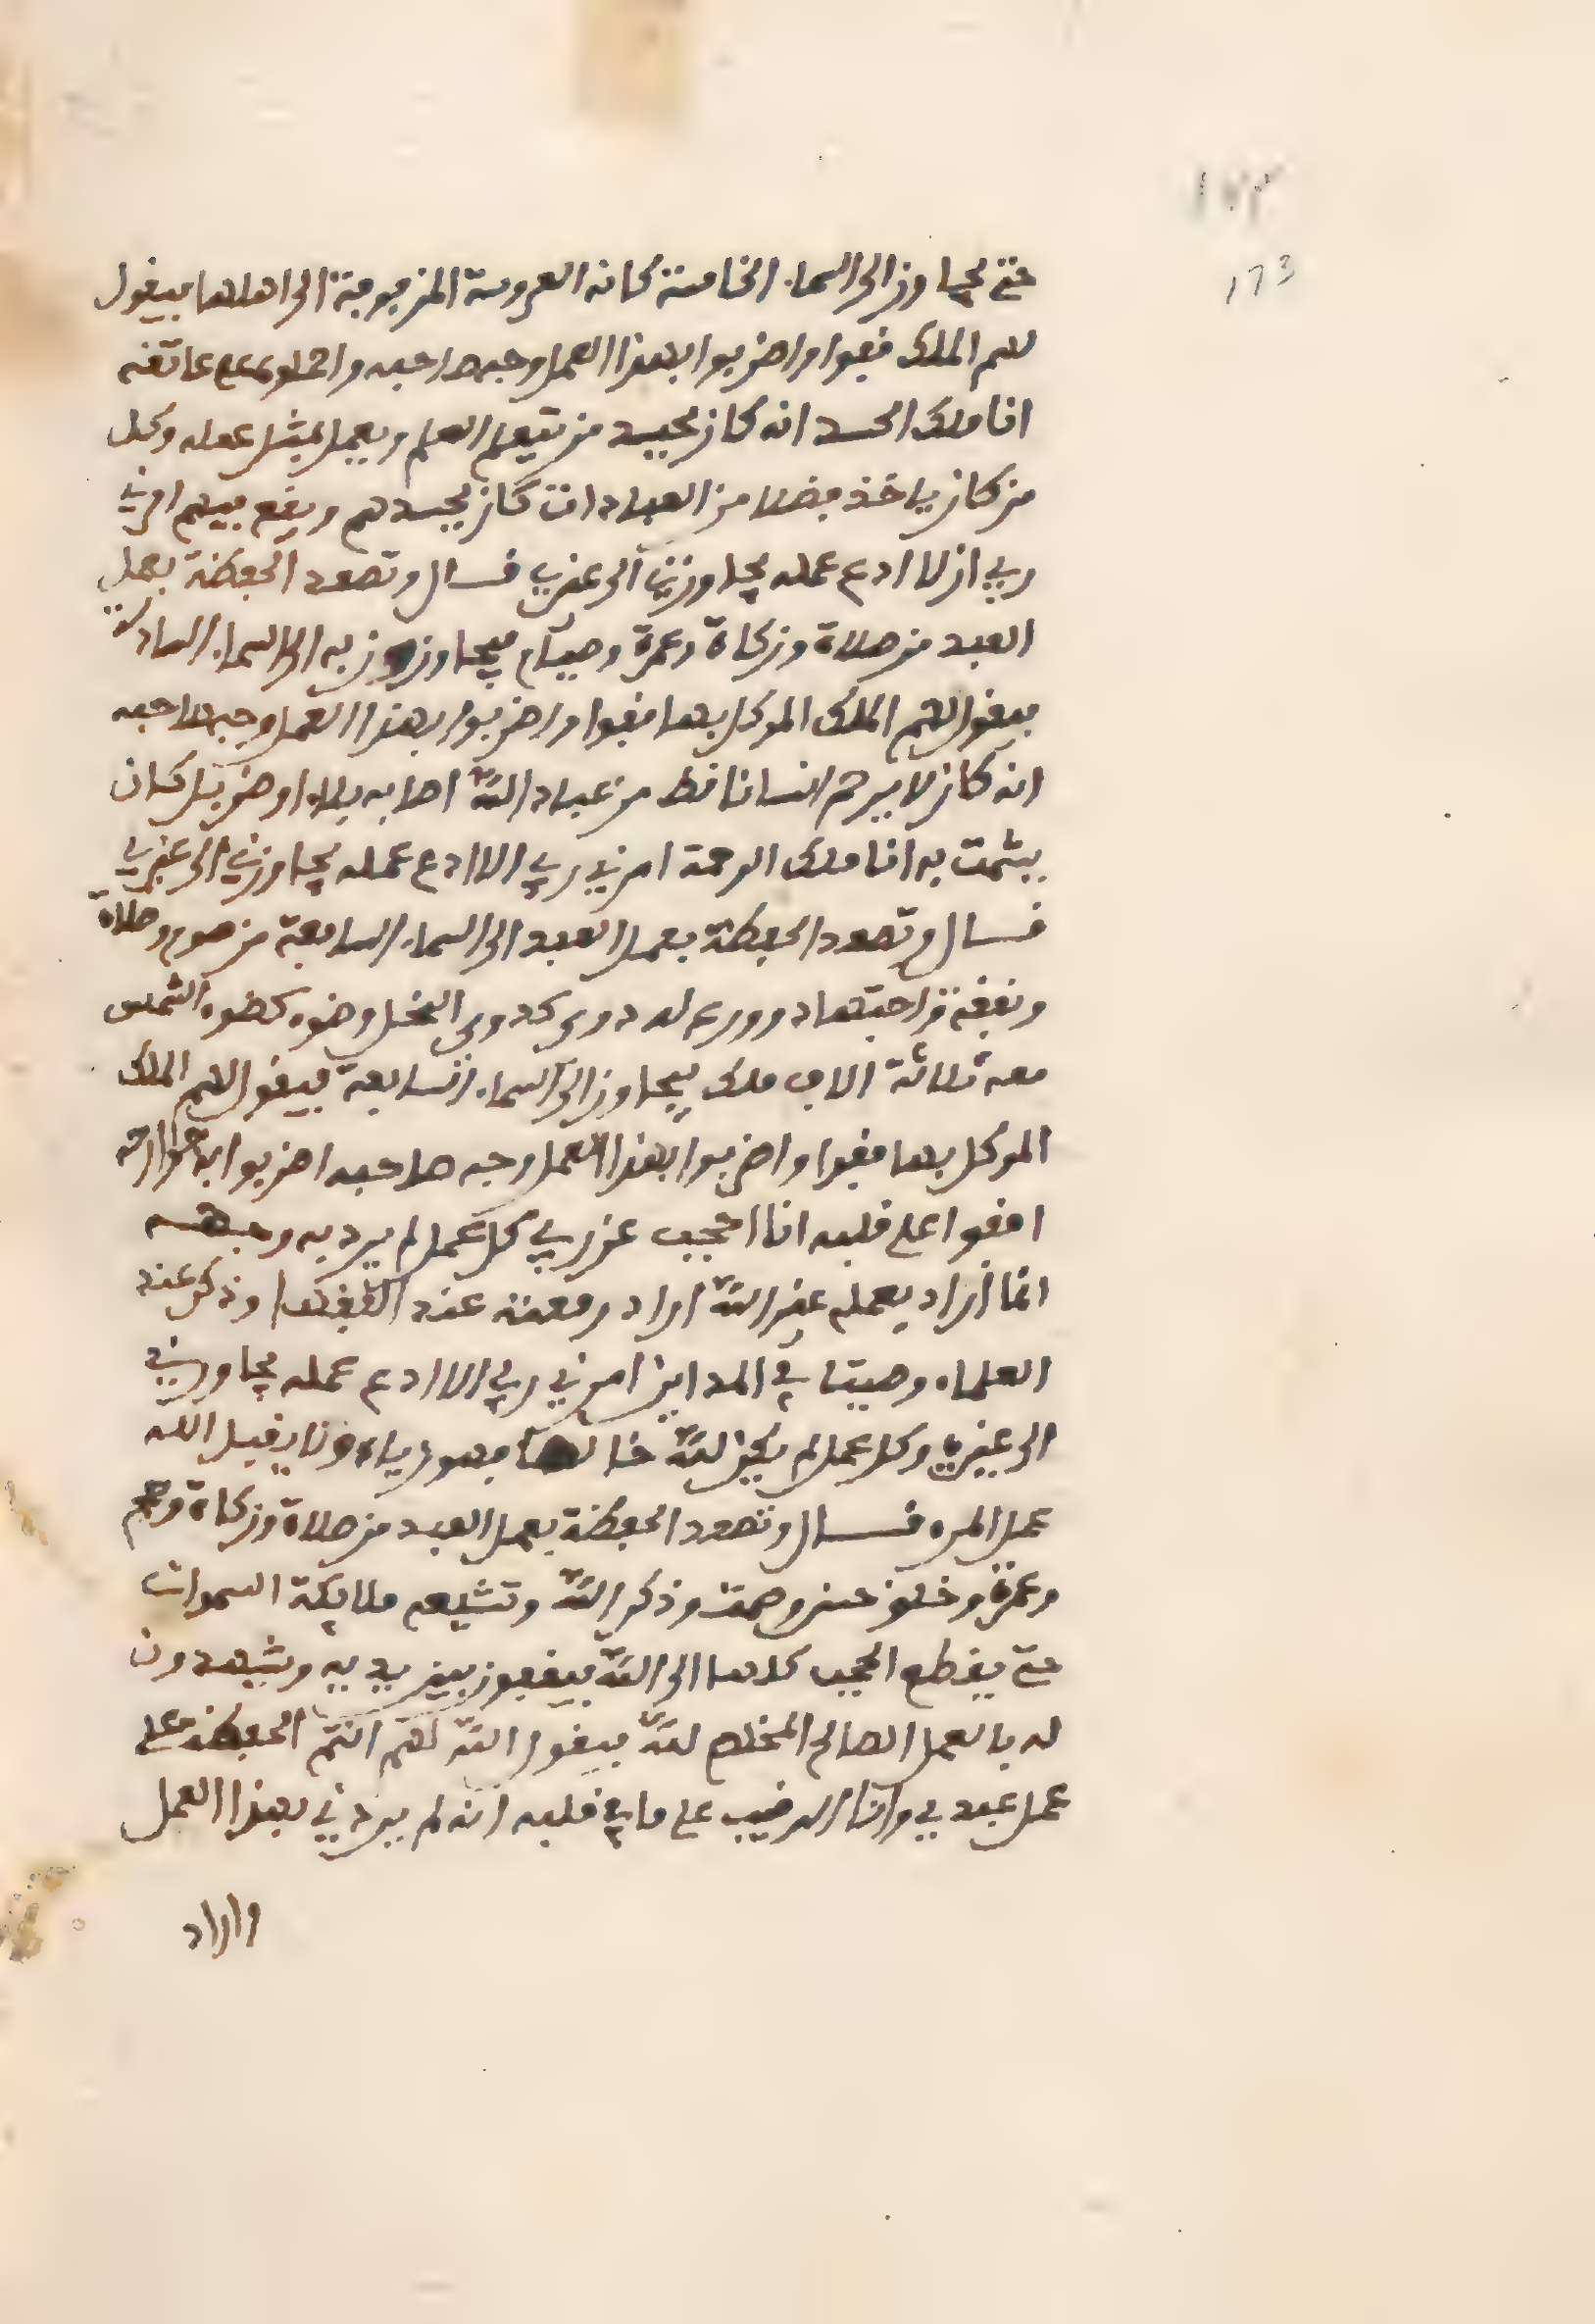 ١٧٣
173
حتى يجاوز الى السماء الخامسة كانه العروسة المزفوفة الى اهلها فيقول
لهم الملك قفوا واضربوا بهذا العمل وجه صاحبه واحملوه على عاتقه
انا ملك الحسد انه كان يحسد من يتعلم العلم ويعمل بمثل عمله وكل
من كان ياخذ فضلا من العباد انت كان يحسدهم ويقع فيهم امرني
ربي ان لا ادع عمله يجاوزني الى غيري قال وتصعد الحفظة بعمل
العبد من صلاة وزكاة وعمرة وصيام فيجاوزون به الى السماء السادسة
فيقول لهم الملك الموكل بها قفوا واضربوا بهذا العمل وجه صاحبه
انه كان لا يرحم انسانا قط من عباد الله اصابه بلاء او ضر بل كان
يشمت به انا ملك الرحمة امرني ربي الا ادع عمله يجاوزني الى غيري
قال وتصعد الحفظة بعمل العبد الى السماء السابعة من صوم وصلاة
ونفقة واجتهاد وورع له دوي كدوي النحل وضوء كضوء الشمس
معه ثلاثة الاف ملك فيجاوز الى السماء السابعة فيقول لهم الملك
الموكل بها قفوا واضربوا بهذا العمل وجه صاحبه اضربوا به جوارحه
اقفوا على قلبه انا احجب عن ربي كل عمل لم يرد به وجهه
انما اراد بعمله غير الله اراد رفعته عند الفقهاء وذكر عند
العلماء وصيتا في المداين امرني ربي الا ادع عمله يجاوزني
الى غيري وكل عمل لم يكن لله خالصا فهو رياء ولا يقبل الله
عمل المرء قال وتصعد الحفظة بعمل العبد من صلاة وزكاة وحج
وعمرة وخلق حسن وصمت وذكر الله وتشيعه ملايكة السموات
حتى يقطع الحجب كلها الى الله فيقفون بين يديه ويشهدون
له بالعمل الصالح المخلص لله فيقول الله لهم انتم الحفظة على
عمل عبدي وانا الرقيب على ما في قلبه انه لم يردني بهذا العمل
واراد